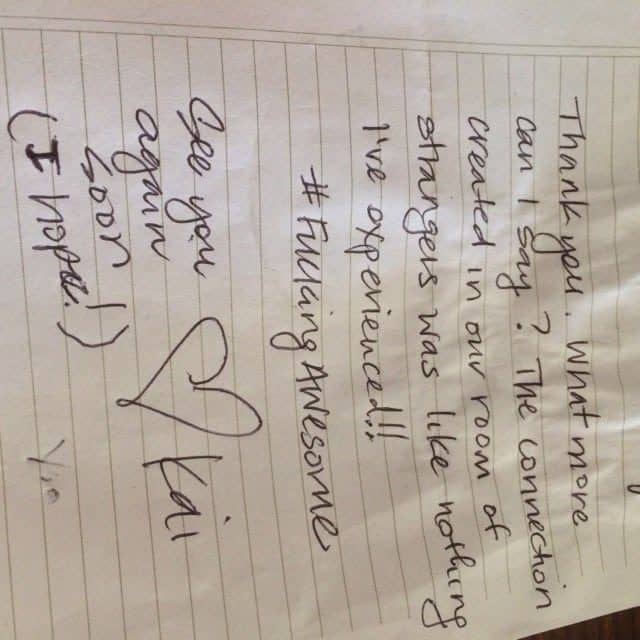 Thank you. What more
can I say? The connection
created in our room of
strangers was like nothing
I've experienced!!!
#FuckingAwesome
See you
again
soon
(I hope!)
♡ Kai